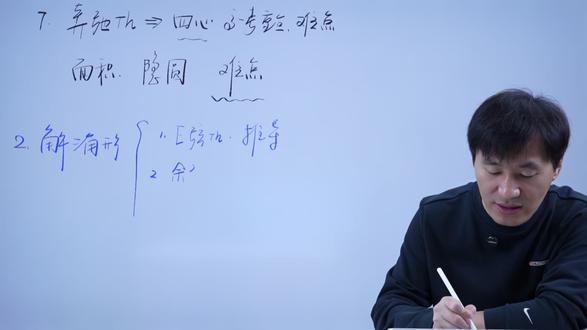 7. 奔驰Th ⇒ 四心 高考重点、难点
面积. 隐圆 难点
2. 解三角形 { 1. 正弦Th. 推导
2 余